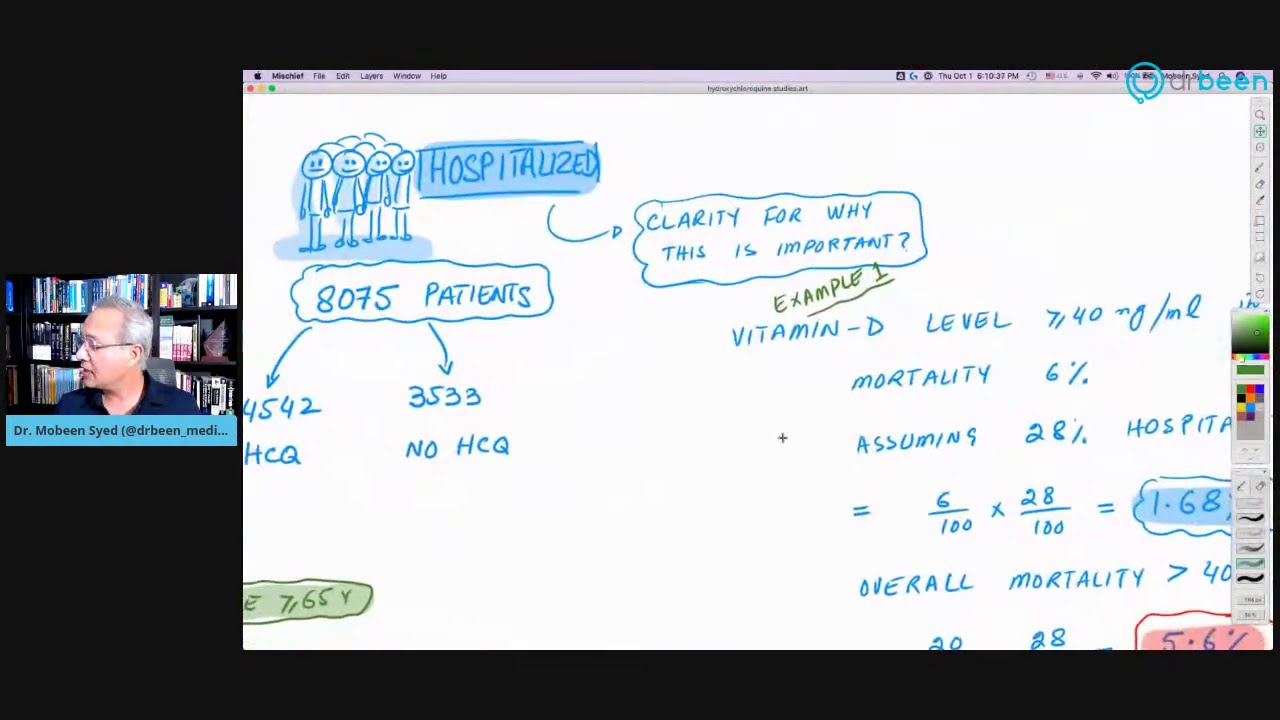 drbeen
Mischief File Edit Layers Window Help
Thu Oct 1 6:10:37 PM
Mobeen Syed
hydroxychloroquine studies.art
HOSPITALIZED
CLARITY FOR WHY
THIS IS IMPORTANT?
8075 PATIENTS
EXAMPLE 1
VITAMIN-D LEVEL ≥40 ng/ml in
4542
3533
MORTALITY 6%
HCQ
NO HCQ
ASSUMING 28% HOSPITA
= 6/100 × 28/100 = 1.68%
OVERALL MORTALITY > 40
E ≥65Y
20 28 = 5.6%
Dr. Mobeen Syed (@drbeen_medi...